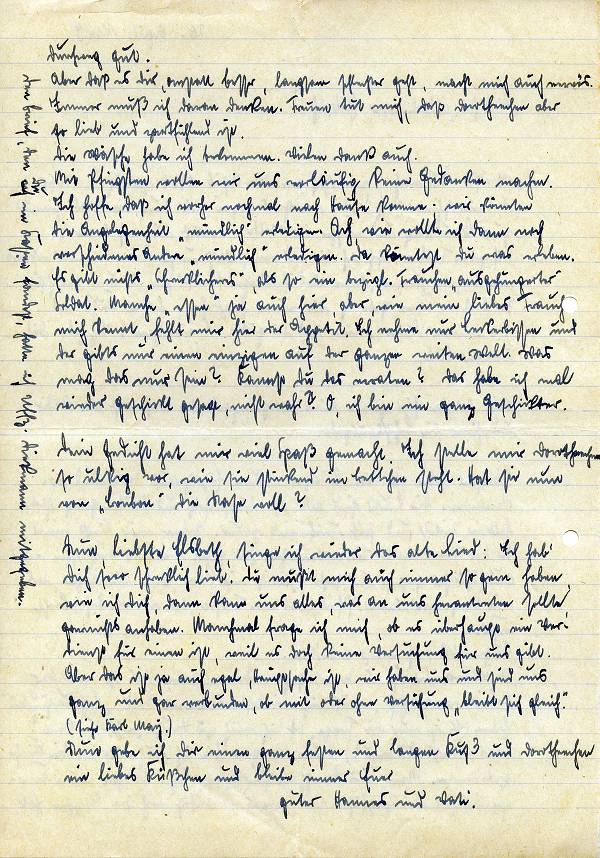 durchweg gut.
Aber daß es dir, anstatt besser, langsam schlechter geht, macht mich auch nervös.
Immer muß ich daran denken. Freuen tut mich, daß Dorthechen aber
so lieb und zartfühlend ist.
Die Wäsche habe ich bekommen. Vielen Dank auch.
Mit Pfingsten wollen wir uns vorläufig keine Gedanken machen.
Ich hoffe, daß ich vorher nochmal nach Hause komme: wir könnten
die Angelegenheit „mündlich" erledigen. Ach wie wollte ich dann noch
verschiedenes Andre „mündlich" erledigen. Da könntest Du was erleben.
Es gibt nichts „Schrecklicheres" als so ein bezügl. Frauchen ausgehungerter
Soldat. Manche „essen" ja auch hier, aber, wie mein liebes Frauch
mich kennt, fehlt mir hier der Appetit. Ich nehme nur Leckerbissen und
der gibts nur einen einzigen auf der ganzen weiten Welt. Was
mag das nur sein? Kannst Du das erraten? Das habe ich mal
wieder geschickt gesagt, nicht wahr? O, ich bin ein ganz Geschickter.
Dein Gedicht hat mir viel Spaß gemacht. Ich stelle mir Dorthechen
so ulkig vor, wie sie stinkend im Bettchen steht. Hat sie nun
von „Bonbon" die Nase voll?
Nun, liebste Elsbeth, singe ich wieder das alte Lied: Ich hab
Dich sooo schrecklich lieb. Du mußt mich auch immer so gern haben,
wie ich Dich, dann kann uns alles, was an uns herantreten sollte,
garnichts anhaben. Manchmal frage ich mich, ob es überhaupt ein Ver-
dienst für einen ist, weil es doch keine Versuchung für uns gibt.
Aber das ist ja auch egal, Hauptsache ist, wir haben uns und sind uns
ganz und gar verbunden, ob mit oder ohne Versuchung „bleibt sich gleich".
(siehe Karl May.)
Nun gebe ich Dir einen ganz festen und langen Kuß und Dorthechen
ein liebes Küßchen und bleibe immer Euer
guter Hannes und Vati.
Den Brief, den Du
auf in fandest, hatte ich mitgegeben.